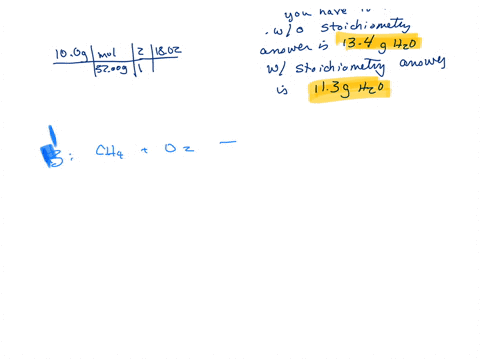 you have to
. w/o stoichiometry
answer is 13.4 g H2O
w/ stoichiometry answer
is 11.3 g H2O
10.0g | mol | 2 | 18.02
52.00g | 1
B: CH4 + O2 —